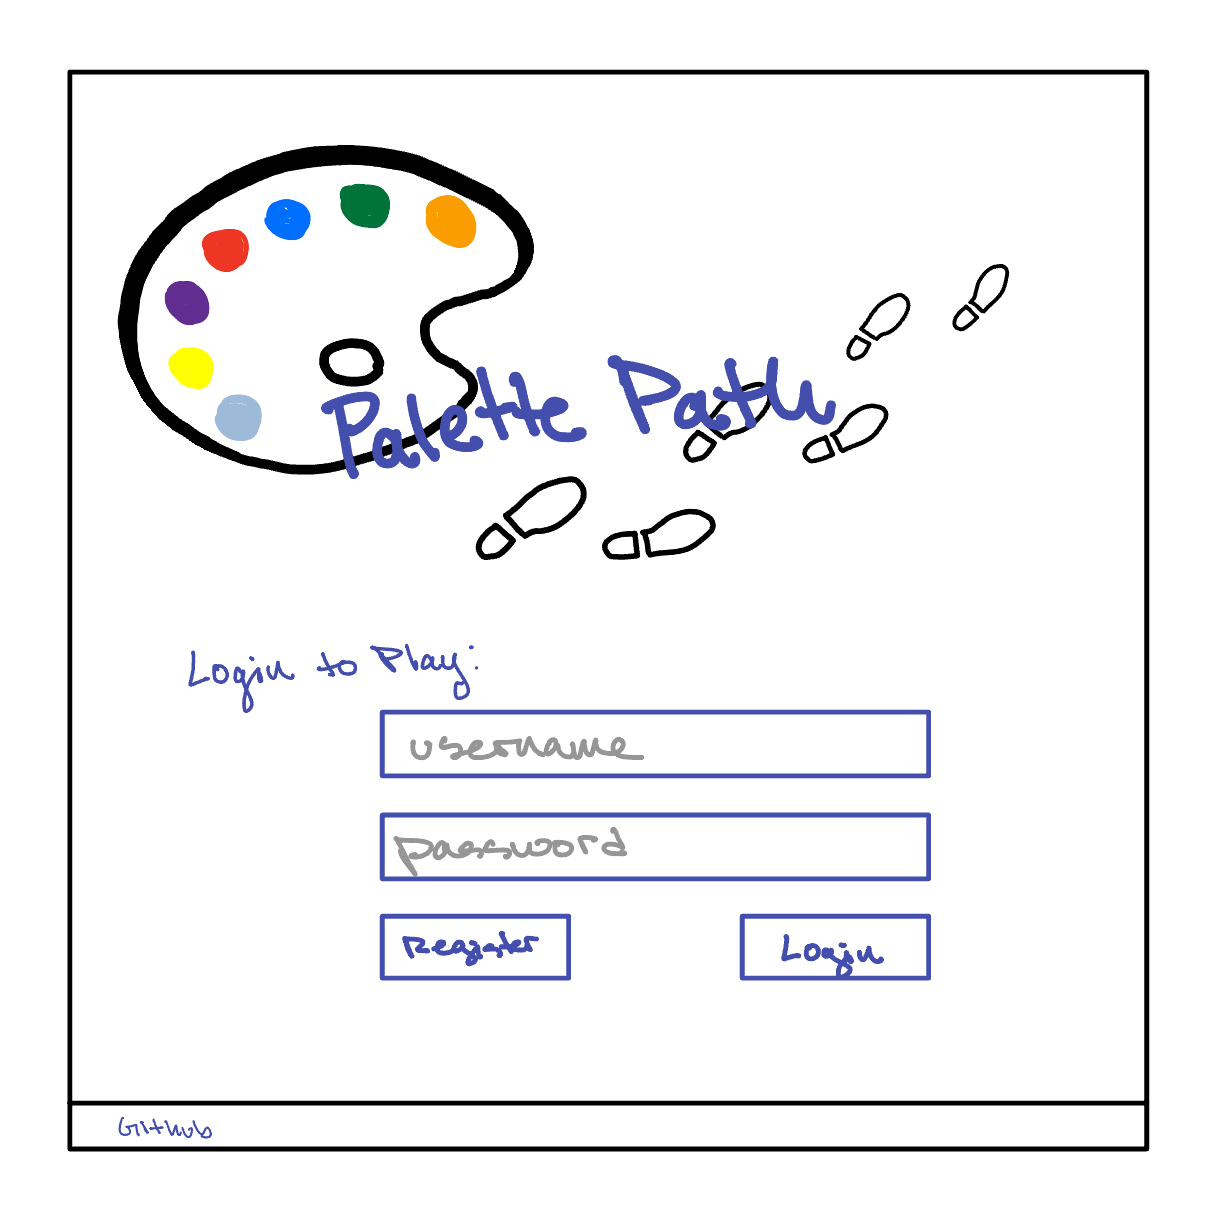 Palette Path
Login to Play:
username
password
Register
Login
GitHub